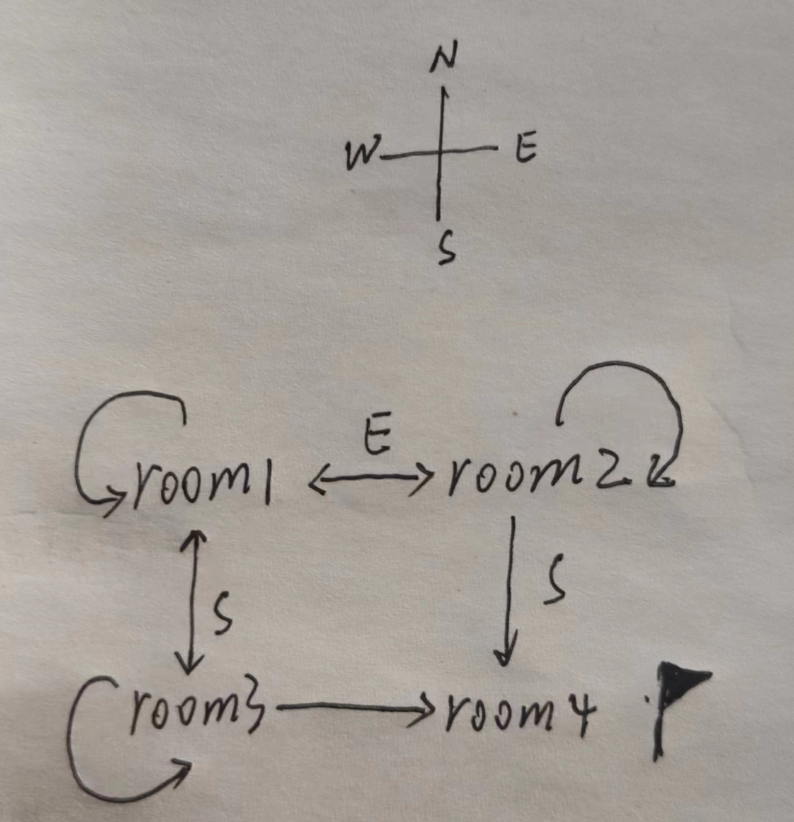 N
W E
S
E
room1 room2
S S
room3 room4